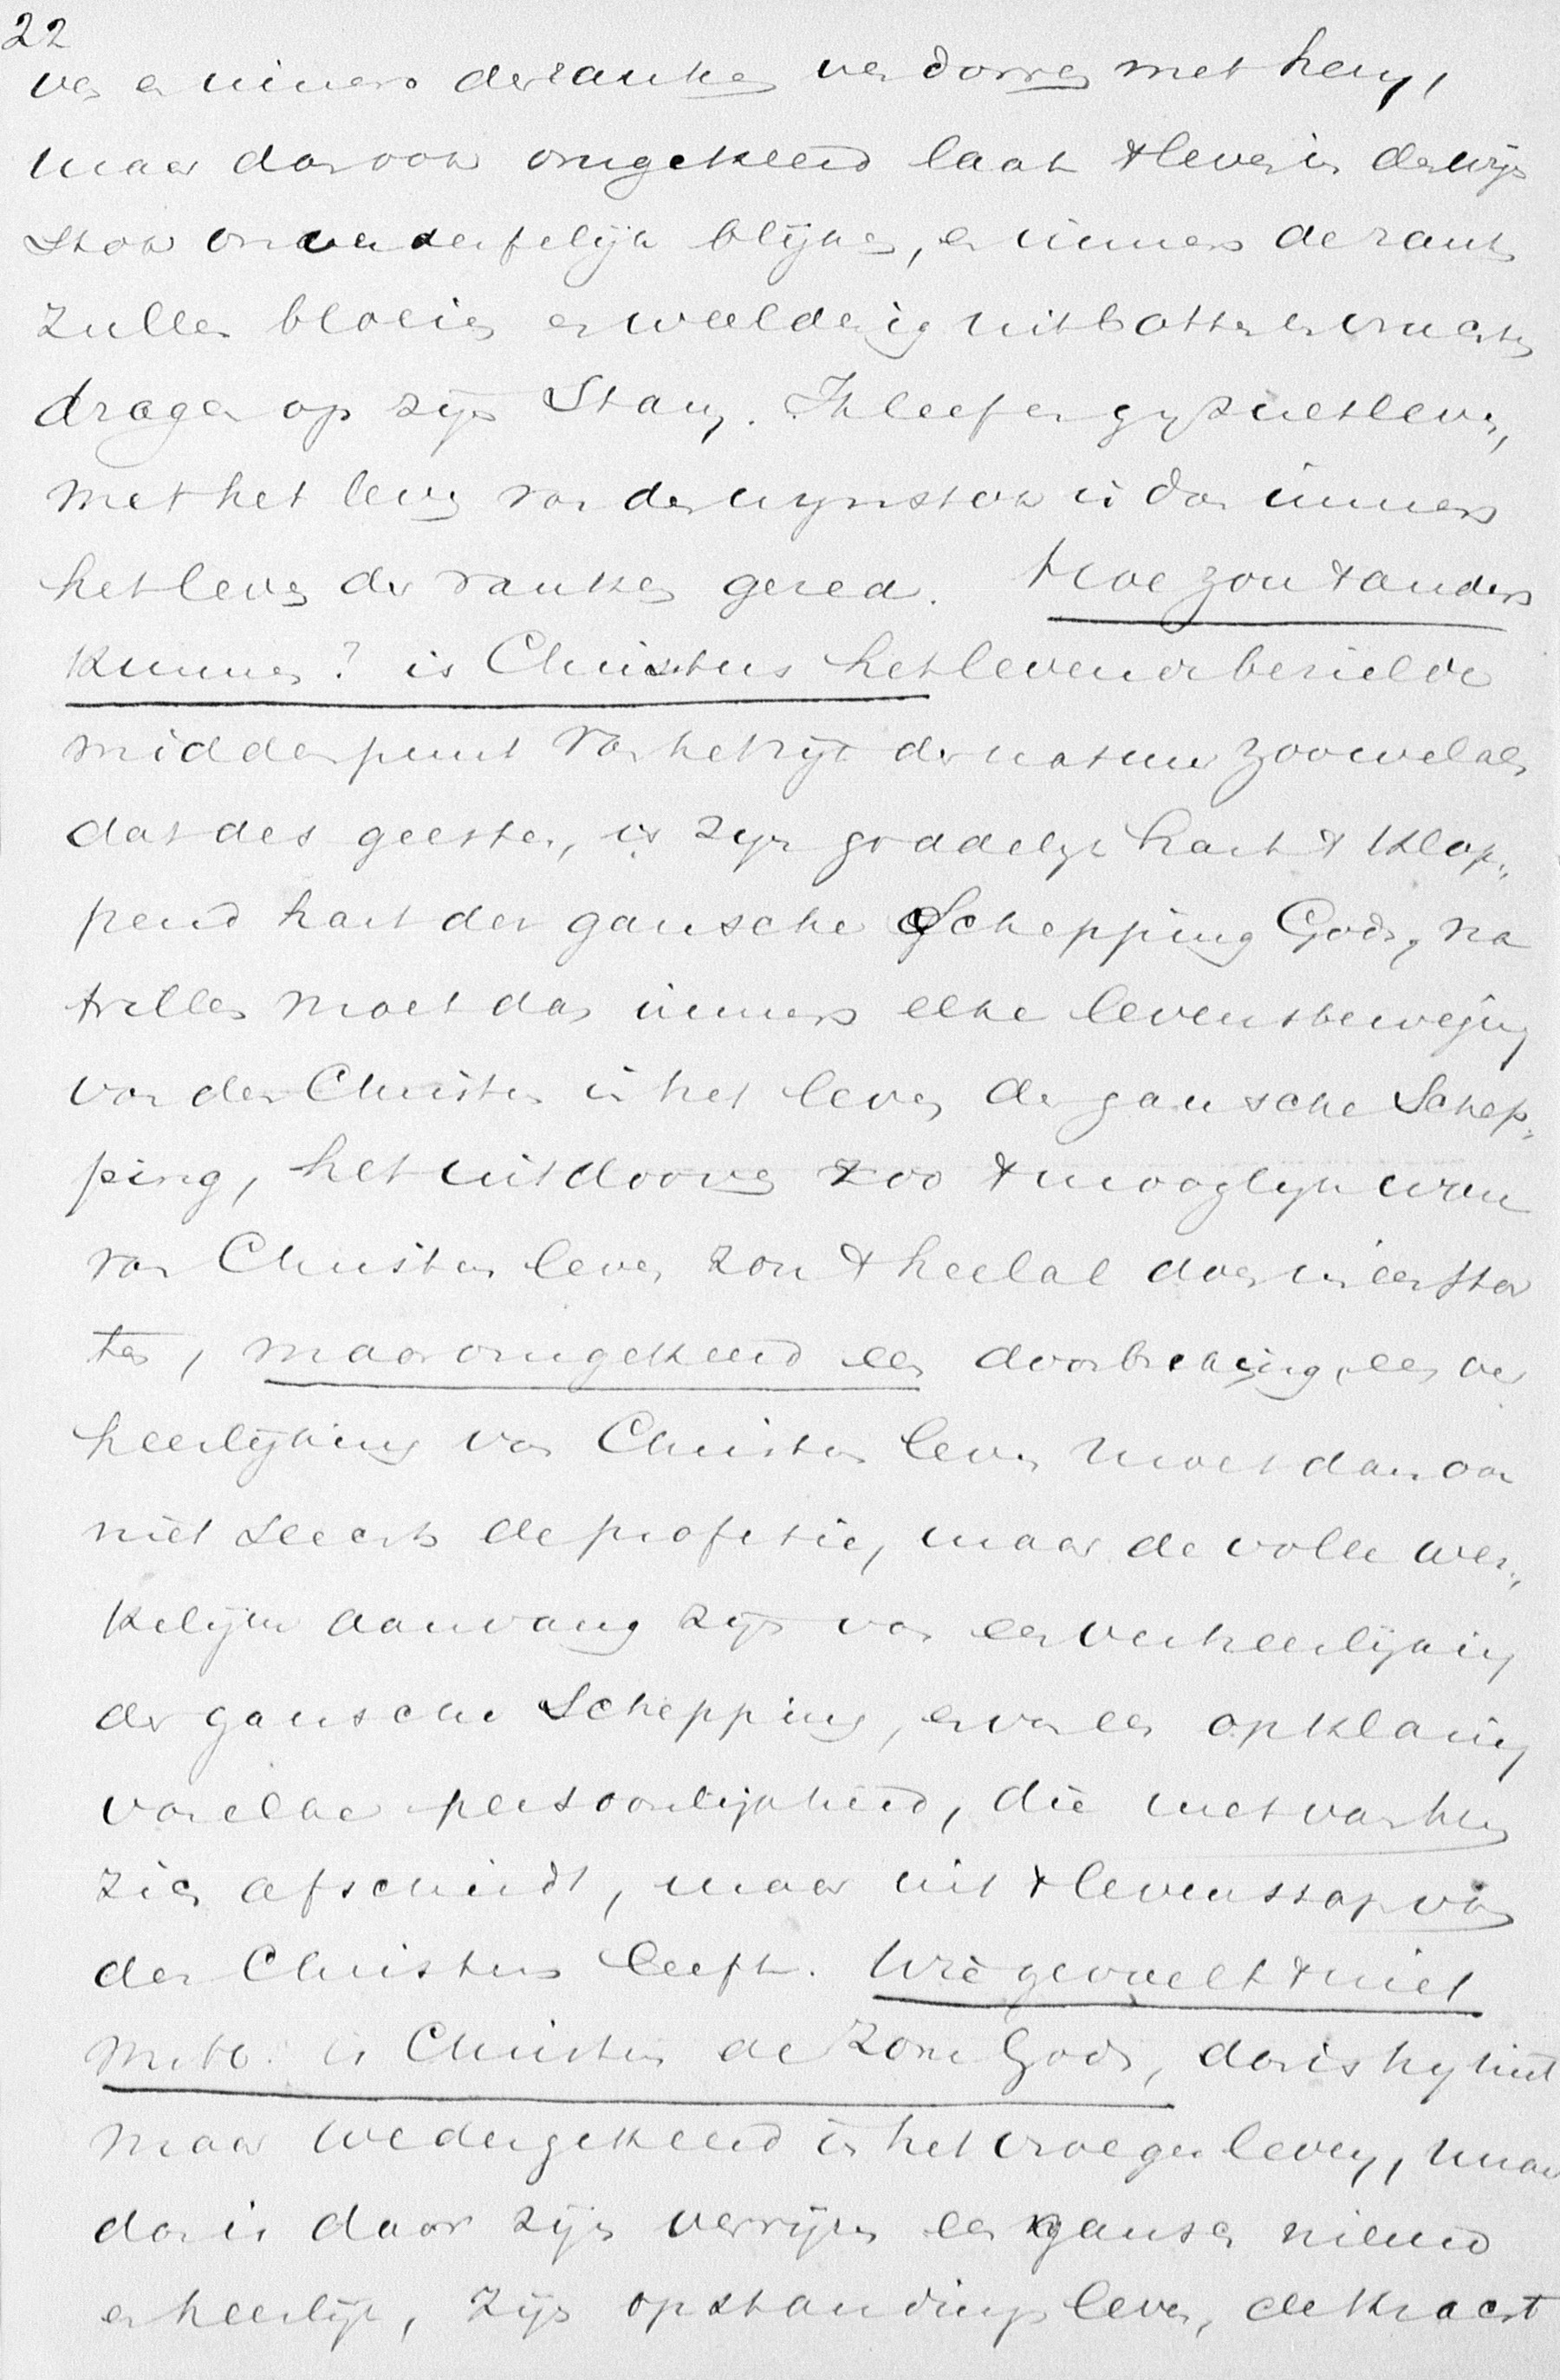 22
ven en immers de ranken verdorren met hem,
maar dan ook omgekeerd laat 't leven in den wijn
stok onverderfelijk blijken, en immers de ranken
zullen bloeien en weelderig uitbotten en vruchten
dragen op zijn Stam. Ik leef en gij zult leven,
met het leven van den wijnstok is dan immers
het leven der ranken gered. Hoe zou 't anders
kunnen? is Christus het leven en bezielde
middenpunt van het rijk der natuur zoowel als
dat des geestes, is zijn goddelijk hart 't klop„
pend hart der gansche Schepping Gods, na
trillen moet dan immers elke levensbeweging
van den Christus in het leven der gansche Schep„
ping, het uitdooven zoo 't mooglijk ware
van Christus leven zou 't heelal doen ineenstor
ten, maar omgekeerd een doorbreking, een ver
heerlijking van Christus leven moet dan ook
niet slechts de profetie, maar de volle wer„
kelijke aanvang zijn van een verheerlijking
der gansche Schepping, en van een opklaring
van elke persoonlijkheid, die niet van hem
zich afscheidt, maar uit 't levenssap van
den Christus leeft. Wie gevoelt 't niet
M.H. is Christus de Zone Gods, dan is hij niet
maar wedergekeerd in het vroeger leven, maar
dan is door zijn verrijzen een gansch nieuw
en heerlijk, zijn opstandingsleven, de kracht